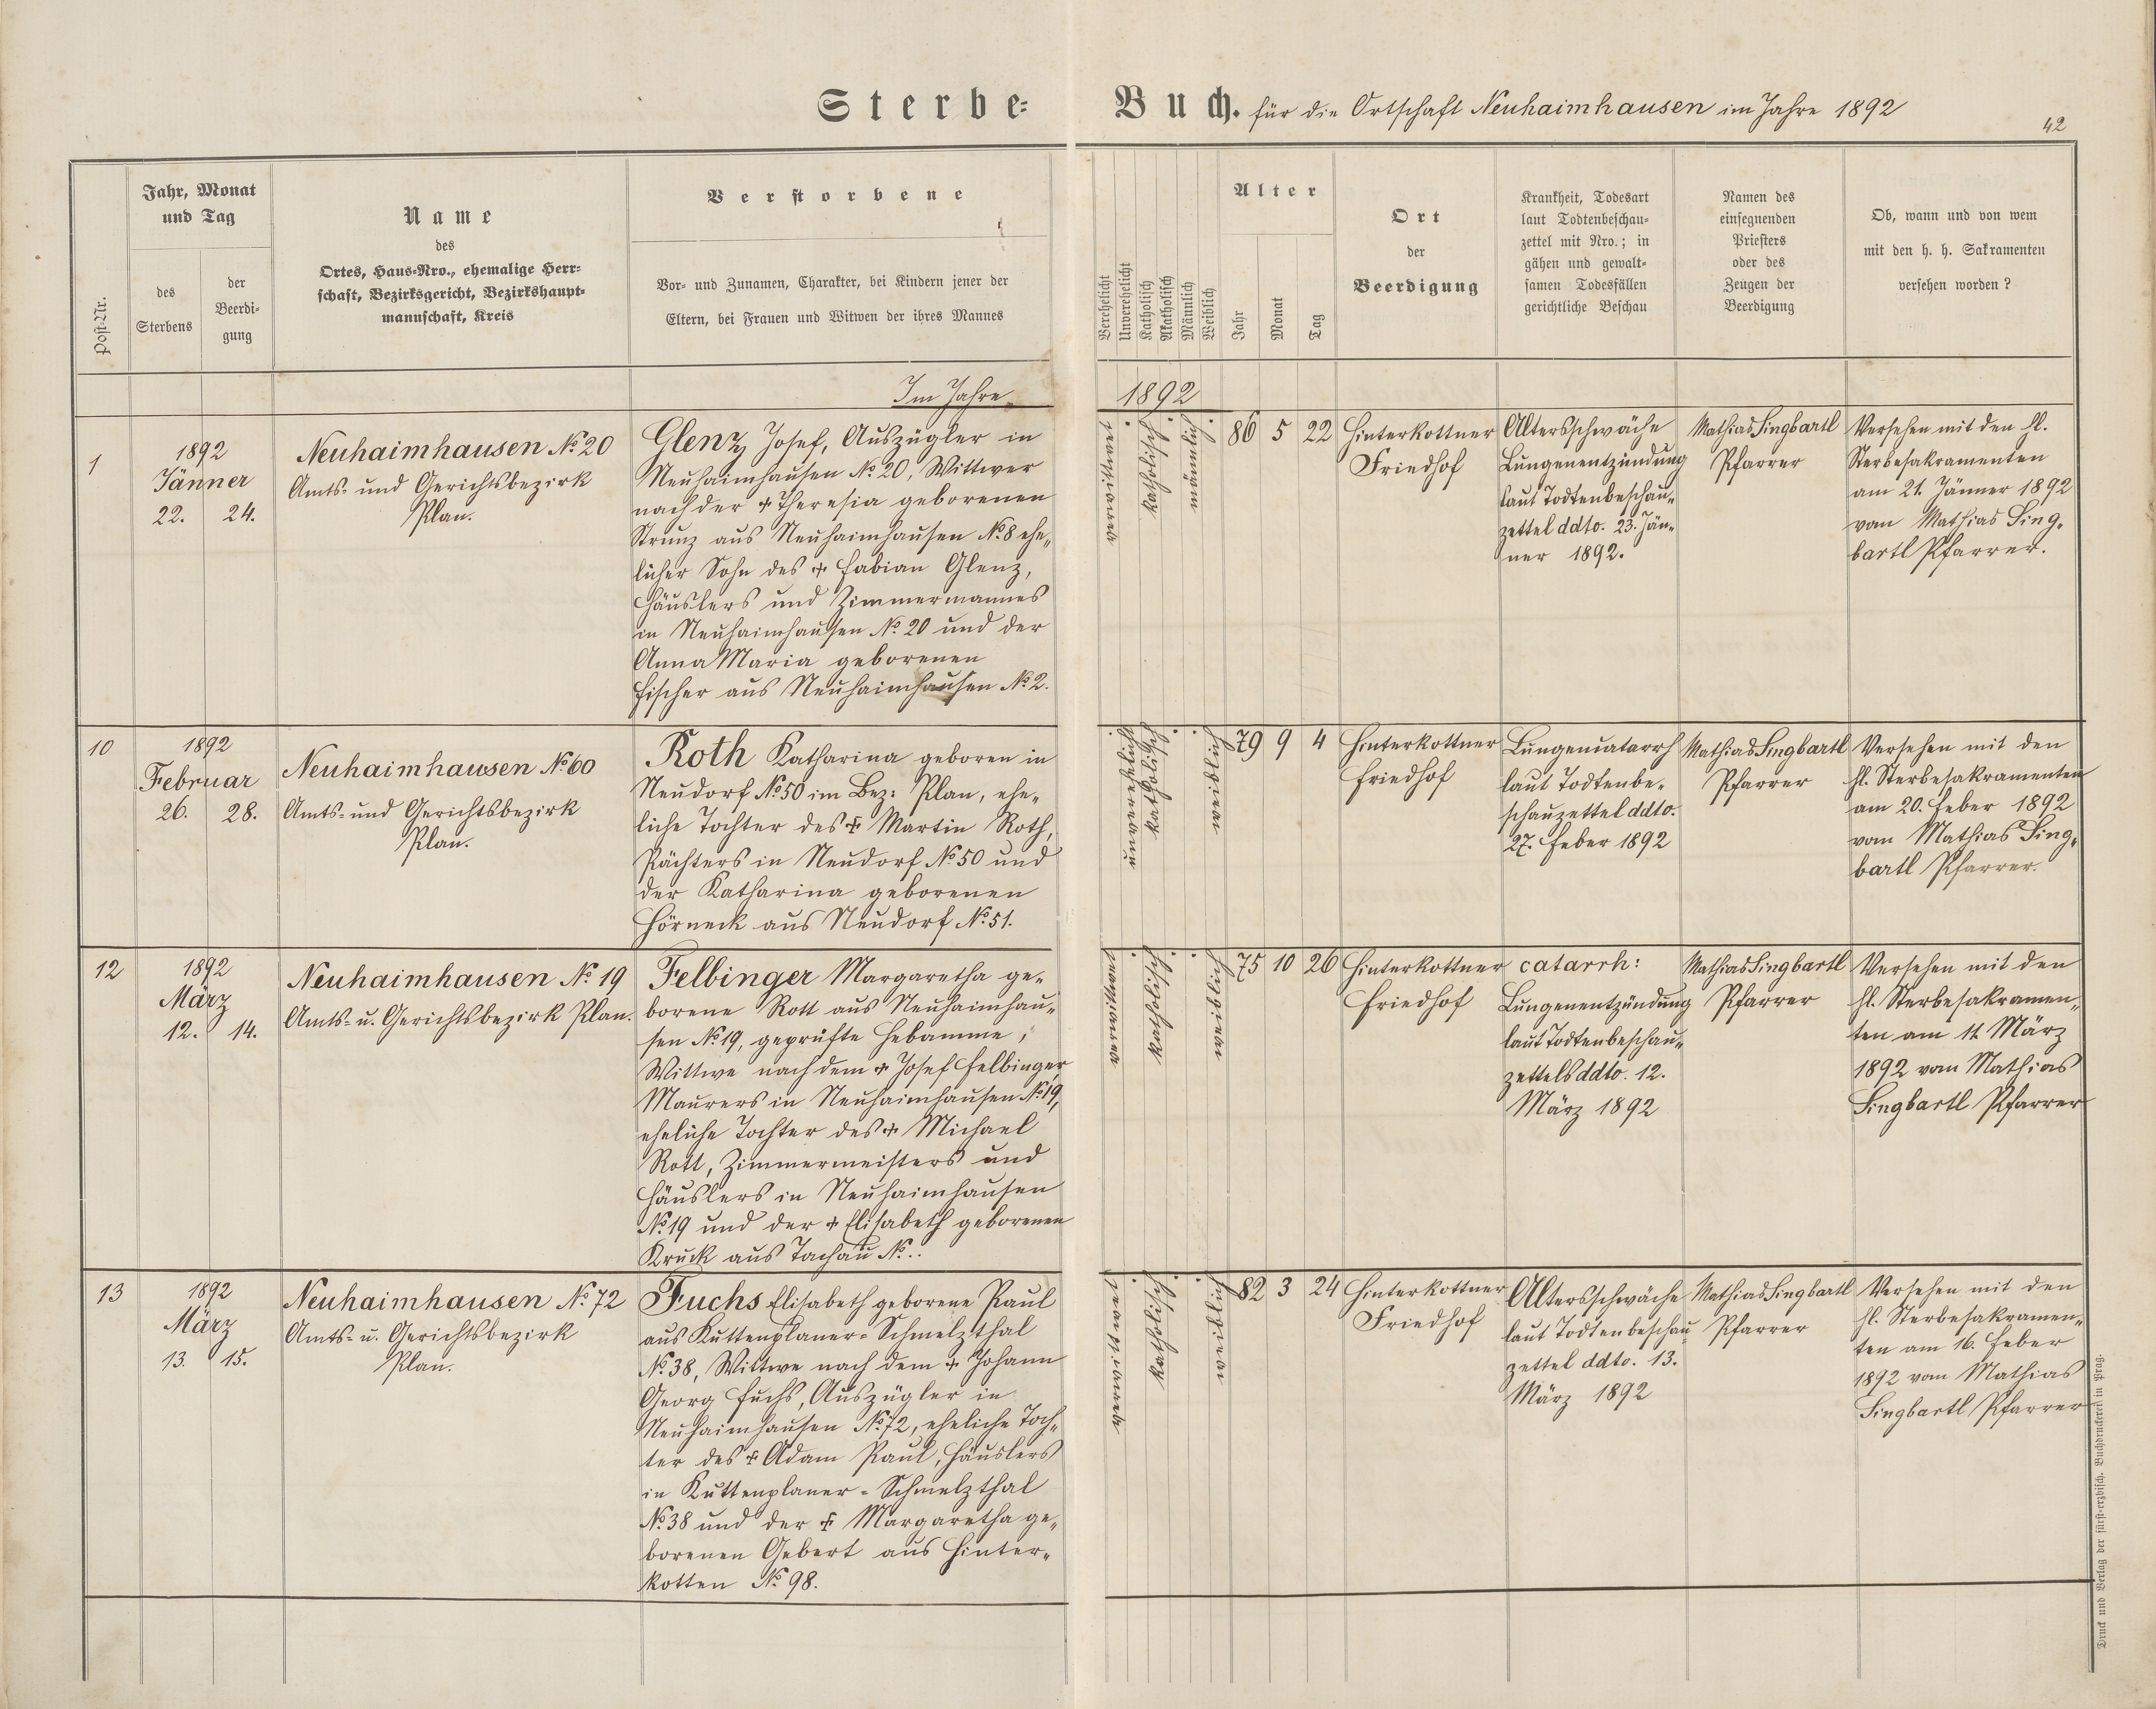 Sterbe-Buch. für die Ortschaft Neuhaimhausen im Jahre 1892
42
Post-Nr.
Jahr, Monat
und Tag
des
Sterbens
der
Beerdi-
gung
Name
des
Ortes, Haus-Nro., ehemalige Herr-
schaft, Bezirksgericht, Bezirkshaupt-
mannschaft, Kreis
Verstorbene
Vor- und Zunamen, Charakter, bei Kindern jener der
Eltern, bei Frauen und Witwen der ihres Mannes
Verehelicht
Unverehelicht
Katholisch
Akatholisch
Männlich
Weiblich
Alter
Jahr
Monat
Tag
Ort
der
Beerdigung
Krankheit, Todesart
laut Todtenbeschau-
zettel mit Nro.; in
gähen und gewalt-
samen Todesfällen
gerichtliche Beschau
Namen des
einsegnenden
Priesters
oder des
Zeugen der
Beerdigung
Ob, wann und von wem
mit den h. h. Sakramenten
versehen worden?
Im Jahre
1892
1
1892
Jänner
22. 24.
Neuhaimhausen No. 20
Amts- und Gerichtsbezirk
Plan.
Glenz Josef, Auszügler in
Neuhaimhausen No. 20, Wittwer
nach der + Theresia geborenen
Strunz aus Neuhaimhausen No. 8 ehe„
licher Sohn des + Fabian Glenz,
Häuslers und Zimmermannes
in Neuhaimhausen No. 20 und der
Anna Maria geborenen
Fischer aus Neuhaimhausen No. 2.
verwittwet
katholisch
männlich
86 5 22
Hinterkottner
Friedhof
Altersschwäche
Lungenentzündung
laut Todtenbeschau„
zettel ddto. 23. Jän„
ner 1892.
Mathias Singbartl
Pfarrer
Versehen mit den hl.
Sterbesakramenten
am 21. Jänner 1892
vom Mathias Sing„
bartl Pfarrer.
10
1892
Februar
26. 28.
Neuhaimhausen No. 60
Amts- und Gerichtsbezirk
Plan.
Roth Katharina geboren in
Neudorf No. 50 im Bez: Plan, ehe„
liche Tochter des + Martin Roth,
Pächters in Neudorf No. 50 und
der Katharina geborenen
Hörneck aus Neudorf No. 51.
unverehelicht
katholisch
weiblich
79 9 4
Hinterkottner
Friedhof
Lungencatarrh
laut Todtenbe„
schauzettel ddto.
27. Feber 1892
Mathias Singbartl
Pfarrer
Versehen mit den
hl. Sterbesakramenten
am 20. Feber 1892
vom Mathias Sing„
bartl Pfarrer.
12
1892
März
12. 14.
Neuhaimhausen No. 19
Amts- u. Gerichtsbezirk Plan.
Felbinger Margaretha ge„
borene Rott aus Neuhaimhau„
sen No. 19, geprüfte Hebamme,
Wittwe nach dem + Josef Felbinger,
Maurers in Neuhaimhausen No. 19,
eheliche Tochter des + Michael
Rott, Zimmermeisters und
Häuslers in Neuhaimhausen
No. 19 und der + Elisabeth geborenen
Kruck aus Tachau No. ..
verwittwet
katholisch
weiblich
75 10 26
Hinterkottner
Friedhof
catarrh:
Lungenentzündung
laut Todtenbeschau„
zettels ddto. 12.
März 1892
Mathias Singbartl
Pfarrer
Versehen mit den
hl. Sterbesakramen„
ten am 11. März
1892 vom Mathias
Singbartl Pfarrer
13
1892
März
13. 15.
Neuhaimhausen No. 72
Amts- u. Gerichtsbezirk
Plan.
Fuchs Elisabeth geborene Paul
aus Kuttenplaner-Schmelzthal
No. 38, Wittwe nach dem + Johann
Georg Fuchs, Auszügler in
Neuhaimhausen No. 72, eheliche Toch„
ter des + Adam Paul, Häuslers
in Kuttenplaner-Schmelzthal
No. 38 und der + Margaretha ge„
borenen Gebert aus Hinter„
kotten No. 98.
verwittwet
katholisch
weiblich
82 3 24
Hinterkottner
Friedhof
Altersschwäche
laut Todtenbeschau
zettel ddto. 13.
März 1892
Mathias Singbartl
Pfarrer
Versehen mit den
hl. Sterbesakramen„
ten am 16. Feber
1892 vom Mathias
Singbartl Pfarrer
Druck und Verlag der fürst-erzbisch. Buchdruckerei in Prag.